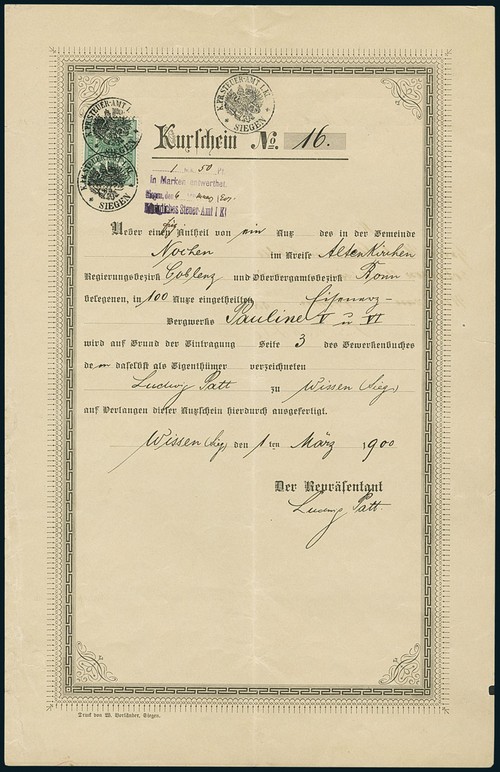 K. PR. STEUER-AMT I.
SIEGEN
K. PR. STEUER-AMT I. Kl.
SIEGEN
Kuxschein No. 16.
1 50
In Marken entwerthet.
Siegen, den 6
Königliches Steuer-Amt I Kl
Ueber einen Antheil von ein Kux des in der Gemeinde
Nochen im Kreise Altenkirchen
Regierungsbezirk Coblenz und Oberbergamtsbezirk Bonn
belegenen, in 100 Kuxe eingetheilten Eisenerz-
Bergwerks Pauline V u VI
wird auf Grund der Eintragung Seite 3 des Gewerkenbuches
dem daselbst als Eigenthümer verzeichneten
Ludwig Patt zu Wissen (Sieg)
auf Verlangen dieser Kuxschein hierdurch ausgefertigt.
Wissen (Sieg) den 1ten März 1900
Der Repräsentant
Ludwig Patt.
Druck von W. Vorländer, Siegen.